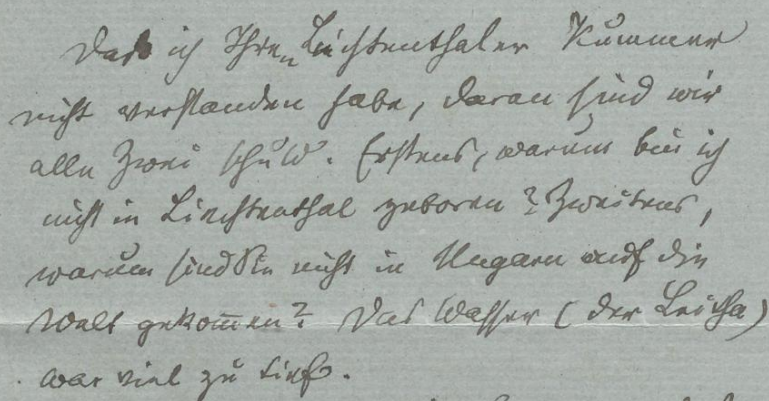 Daß ich Ihren Liechtenthaler Kummer
nicht verstanden habe, daran sind wir
alle zwei schuld. Erstens, warum bin ich
nicht in Liechtenthal geboren? Zweitens,
warum sind Sie nicht in Ungarn auf die
Welt gekom̄en? Das Wasser (der Leitha)
war viel zu tief.